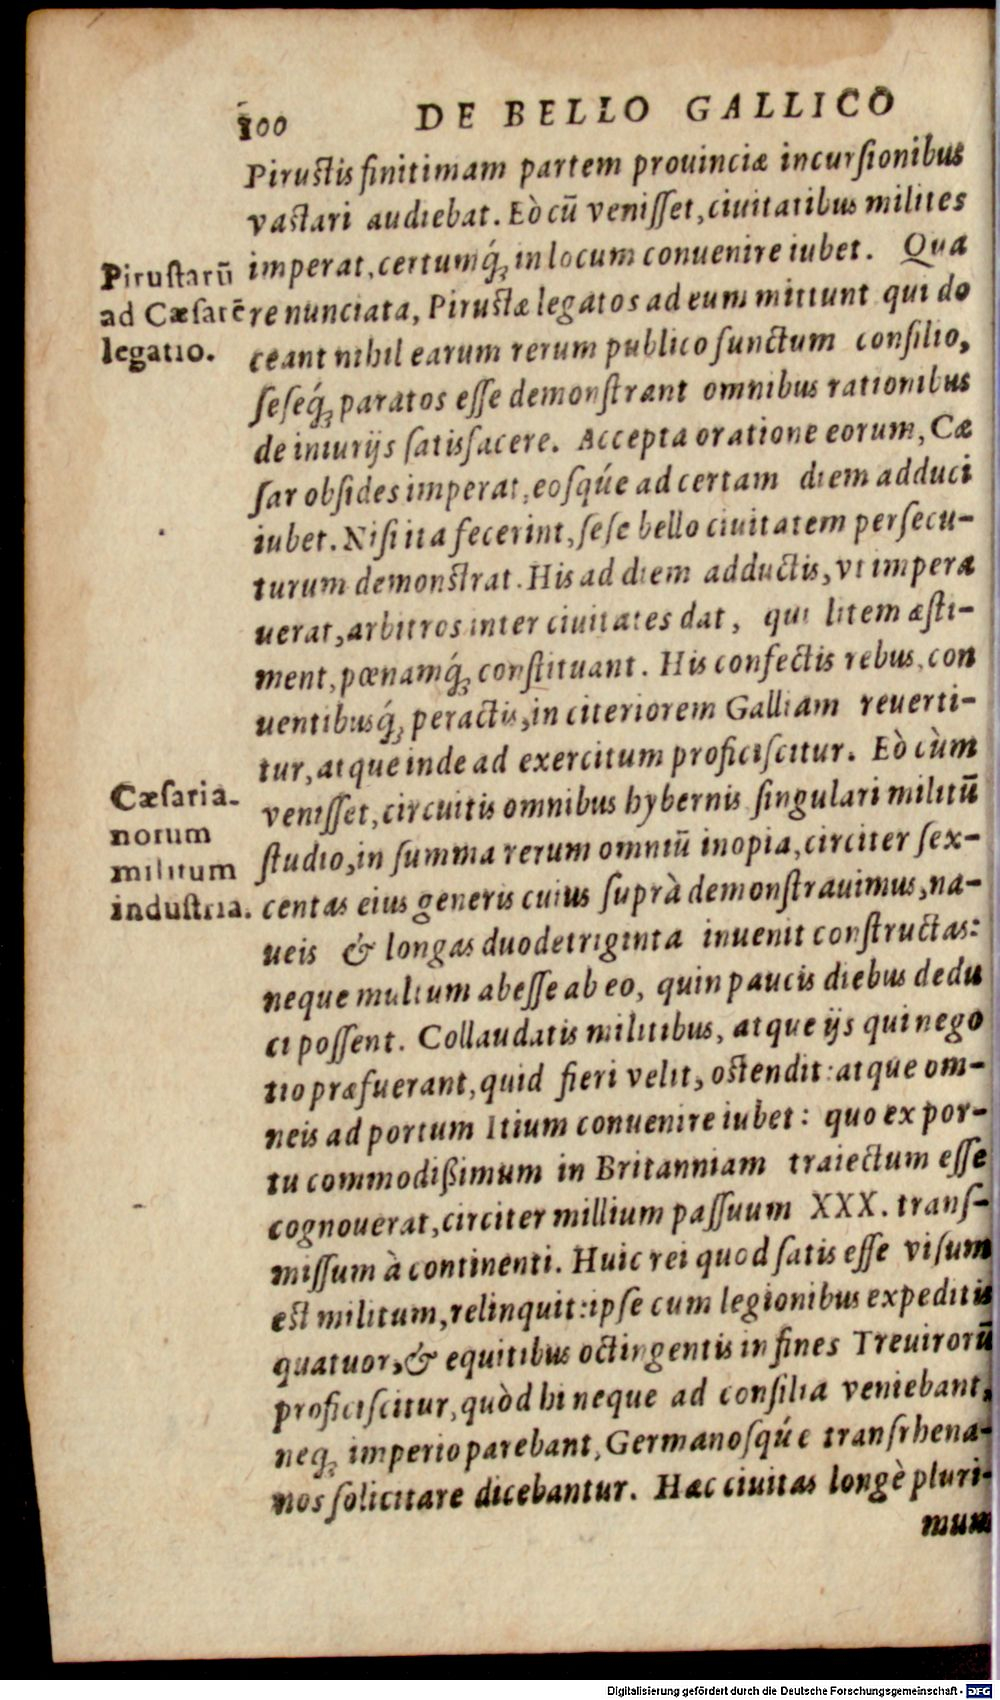 100 DE BELLO GALLICO
Pirustis finitimam partem prouinciæ incursionibus
vastari audiebat. Eò cū venisset, ciuitatibus milites
imperat, certumq́; in locum conuenire iubet. Qua
Pirustarū
ad Cæsarē
legatio.
re nunciata, Pirustæ legatos ad eum mittunt qui do
ceant nihil earum rerum publico functum consilio,
seseq́; paratos esse demonstrant omnibus rationibus
de iniurijs satisfacere. Accepta oratione eorum, Cæ
sar obsides imperat, eosqúe ad certam diem adduci
iubet. Nisi ita fecerint, sese bello ciuitatem persecu-
turum demonstrat. His ad diem adductis, vt impera
uerat, arbitros inter ciuitates dat, qui litem æsti-
ment, pœnamq́; constituant. His confectis rebus, con
uentibusq́; peractis, in citeriorem Galliam reuerti-
tur, atque inde ad exercitum proficiscitur. Eò cùm
Cæsaria-
norum
militum
industria.
venisset, circuitis omnibus hybernis singulari militū
studio, in summa rerum omniū inopia, circiter sex-
centas eius generis cuius suprà demonstrauimus, na-
ueis & longas duodetriginta inuenit constructas:
neque multum abesse ab eo, quin paucis diebus dedu
ci possent. Collaudatis militibus, atque ijs qui nego
tio præfuerant, quid fieri velit, ostendit: atque om-
neis ad portum Itium conuenire iubet: quo ex por-
tu commodißimum in Britanniam traiectum esse
cognouerat, circiter millium passuum XXX. trans-
missum à continenti. Huic rei quod satis esse visum
est militum, relinquit: ipse cum legionibus expeditis
quatuor, & equitibus octingentis in fines Treuirorū
proficiscitur, quòd hi neque ad consilia veniebant,
neq; imperio parebant, Germanosqúe transrhena-
nos solicitare dicebantur. Hæc ciuitas longè pluri-
mum
Digitalisierung gefördert durch die Deutsche Forschungsgemeinschaft - DFG